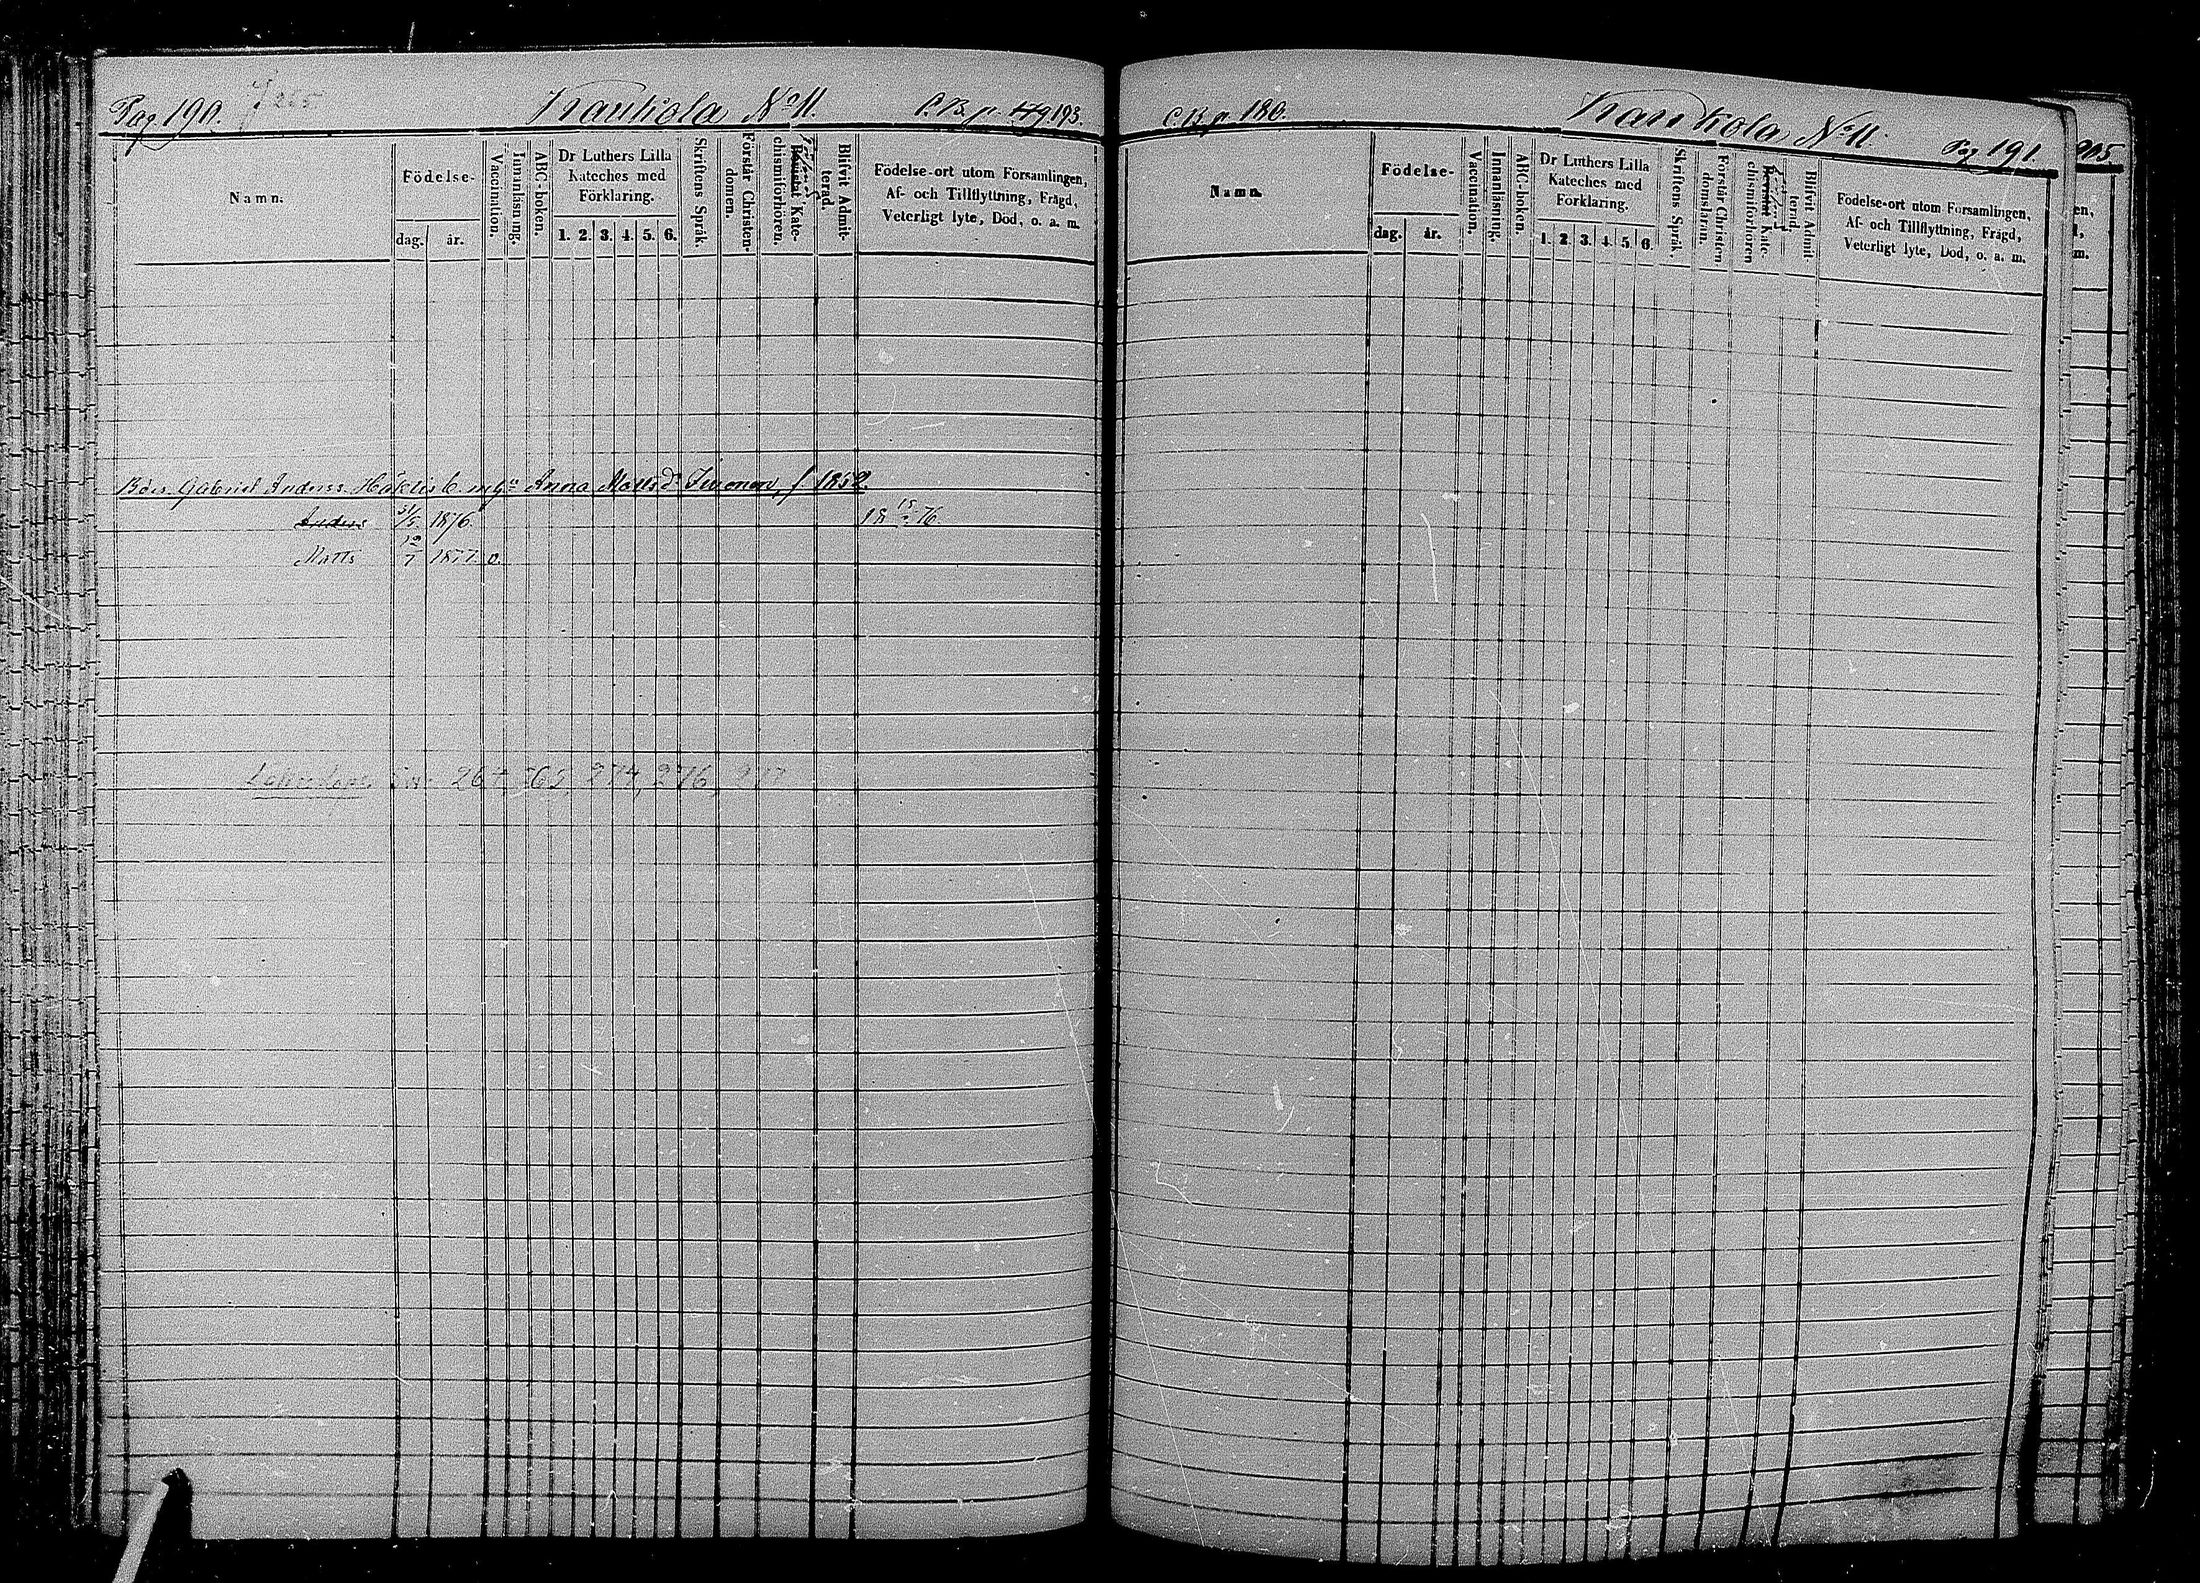 Pag 190.
Kaukola No 11.
C.B. p. 179 193.
Namn.
Födelse-
dag. år.
Vaccination.
Innanläsning.
ABC-boken.
Dr Luthers Lilla Kateches med Förklaring.
1. 2. 3. 4. 5. 6.
Skriftens Språk.
Förstår Christendomen.
Bevistat Katechismiförhören.
Blifvit Admitterad.
Födelse-ort utom Församlingen,
Af- och Tillflyttning, Frägd,
Veterligt lyte, Död, o. a. m.
Gabriel Anders Anna Matts f 1852
Anders 31/5 1876.
Matts 12/7 1877. v.
264, 265, 274, 276,
C.B. p. 180.
Kaukola No 11.
Pag 191.
Namn.
Födelse-
dag. år.
Vaccination.
Innanläsning.
ABC-boken.
Dr Luthers Lilla
Kateches med
Förklaring.
1. 2. 3. 4. 5. 6.
Skriftens Språk.
Förstår Christendomsläran.
Bevistat Katechismiförhören
Blifvit Admitterad.
Födelse-ort utom Församlingen,
Af- och Tillflyttning, Frägd,
Veterligt lyte, Död, o. a. m.